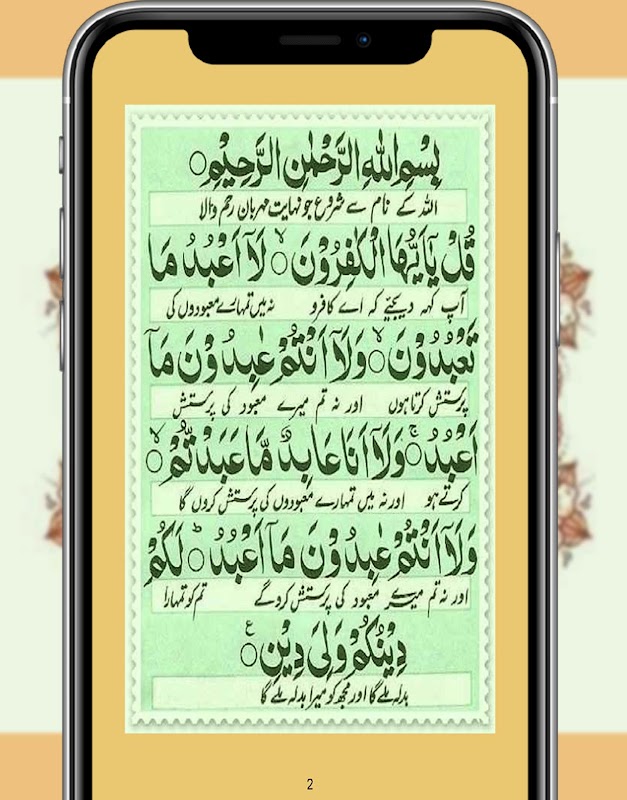 بِسْمِ اللهِ الرَّحْمٰنِ الرَّحِيْمِ ○
اللہ کے نام سے شروع جو نہایت مہربان رحم والا
قُلْ يٰٓاَيُّهَا الْكٰفِرُوْنَ ○ۙ لَآ اَعْبُدُ مَا
آپ کہہ دیجئیے کہ اے کافرو نہ میں تمہارے معبودوں کی
تَعْبُدُوْنَ ○ۙ وَلَآ اَنْتُمْ عٰبِدُوْنَ مَآ
پرستش کرتا ہوں اور نہ تم میرے معبود کی پرستش
اَعْبُدُ ○ۚ وَلَآ اَنَا عَابِدٌ مَّا عَبَدْتُّمْ ○ۙ
کرتے ہو اور نہ میں تمہارے معبودوں کی پرستش کروں گا
وَلَآ اَنْتُمْ عٰبِدُوْنَ مَآ اَعْبُدُ ○ؕ لَكُمْ
اور نہ تم میرے معبود کی پرستش کرو گے تم کو تمہارا
دِيْنُكُمْ وَلِيَ دِيْنِ ○ع
بدلہ ملے گا اور مجھ کو میرا بدلہ ملے گا
2